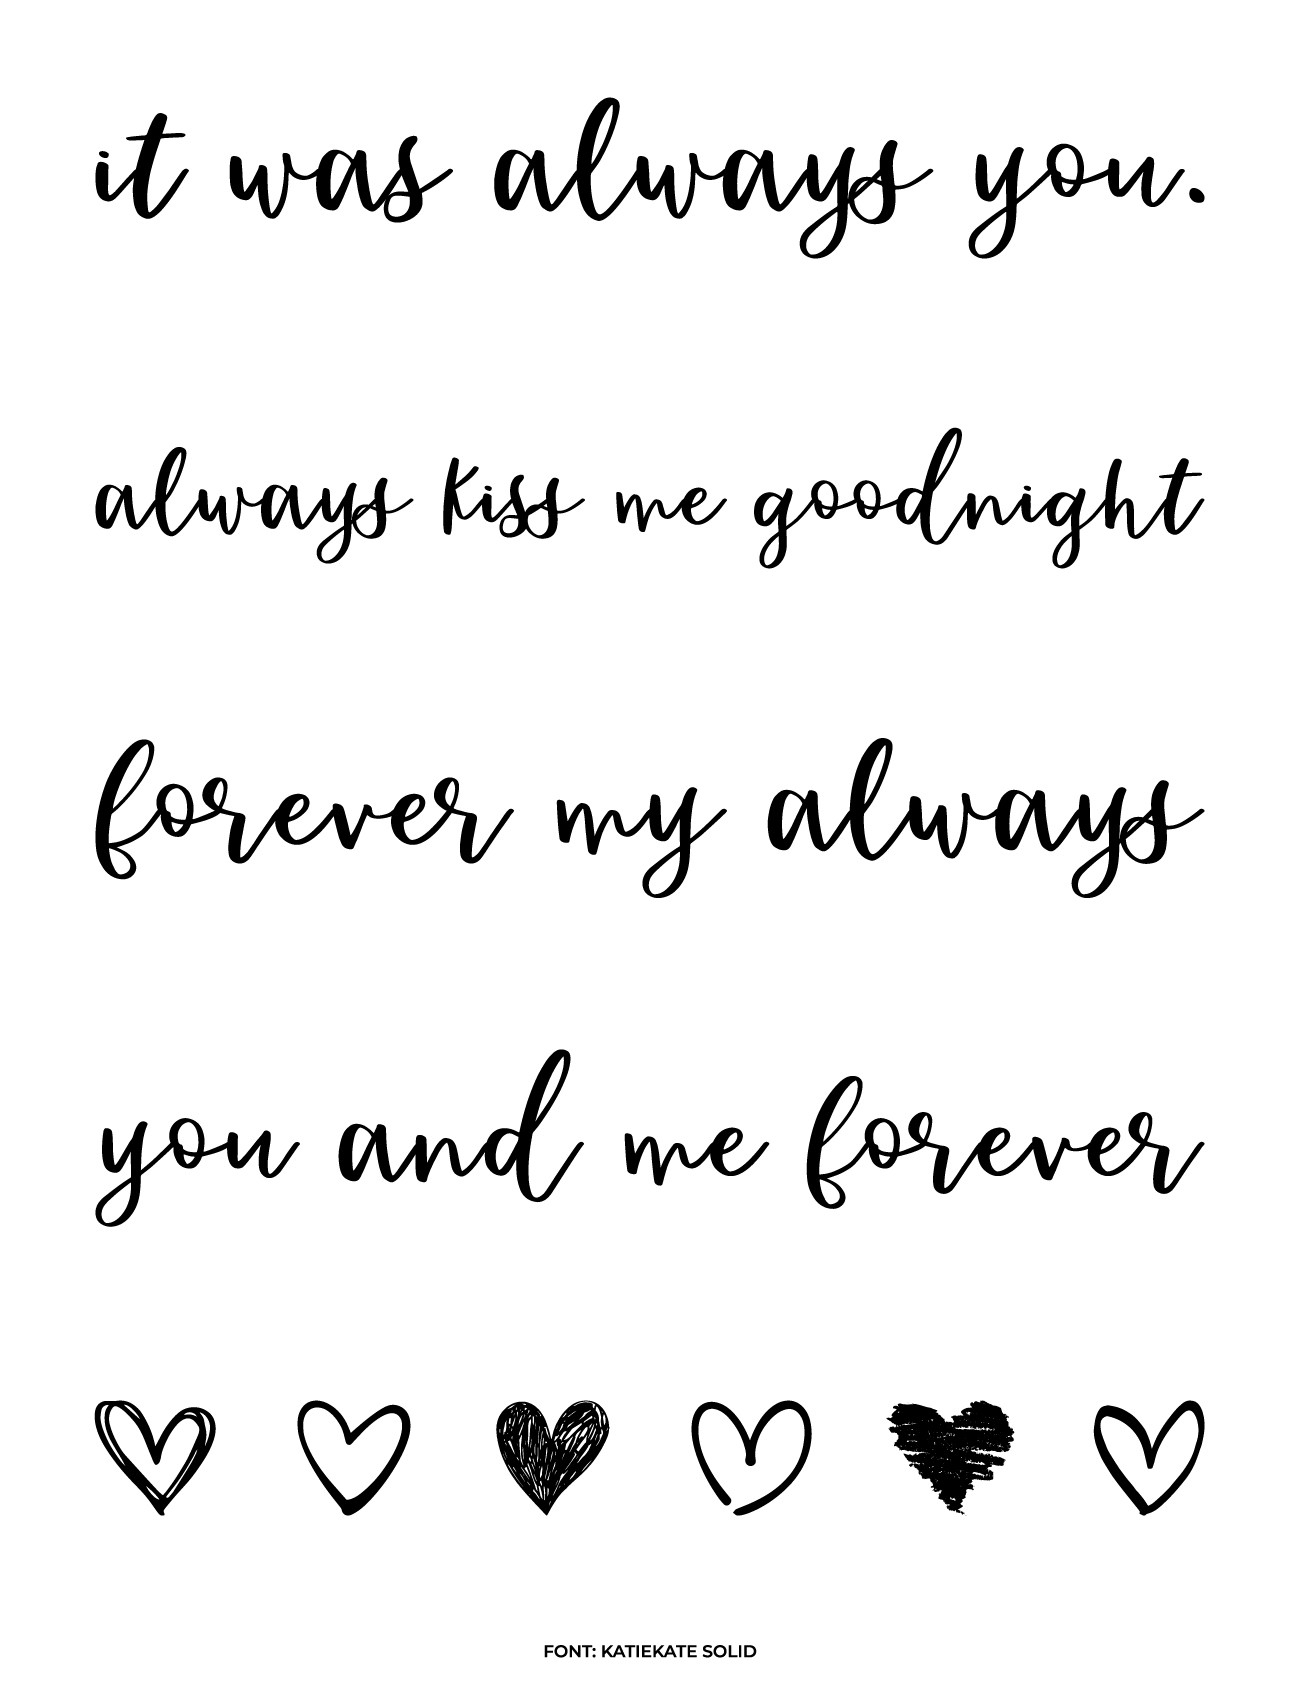 it was always you.
always kiss me goodnight
forever my always
you and me forever
FONT: KATIEKATE SOLID